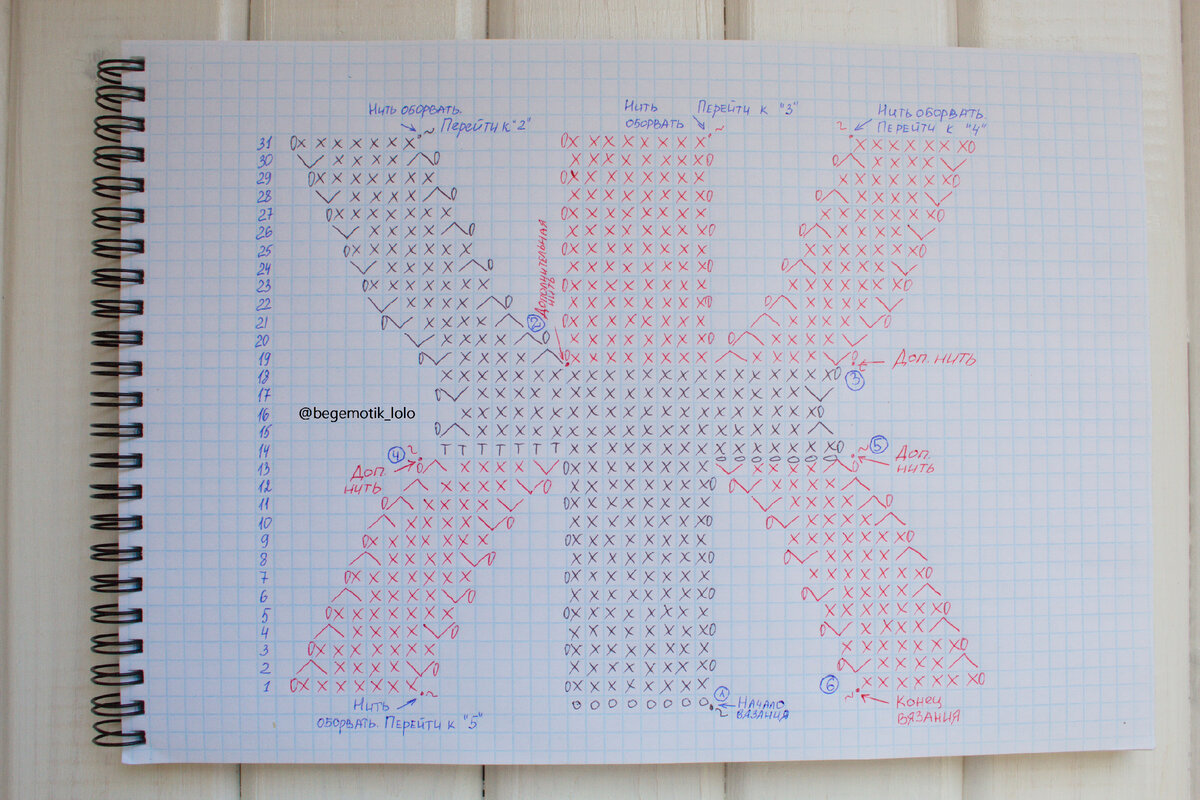 Нить оборвать.
Перейти к "2"
Нить
оборвать
Перейти к "3"
Нить оборвать.
Перейти к "4"
31
30
29
28
27
26
25
24
23
22
21
20
19
18
17
16
15
14
13
12
11
10
9
8
7
6
5
4
3
2
1
2
Дополнительная
нить
Доп. нить
3
@begemotik_lolo
4
Доп.
нить
5
Доп.
нить
6
1
Начало
вязания
Нить
оборвать. Перейти к "5"
Конец
вязания